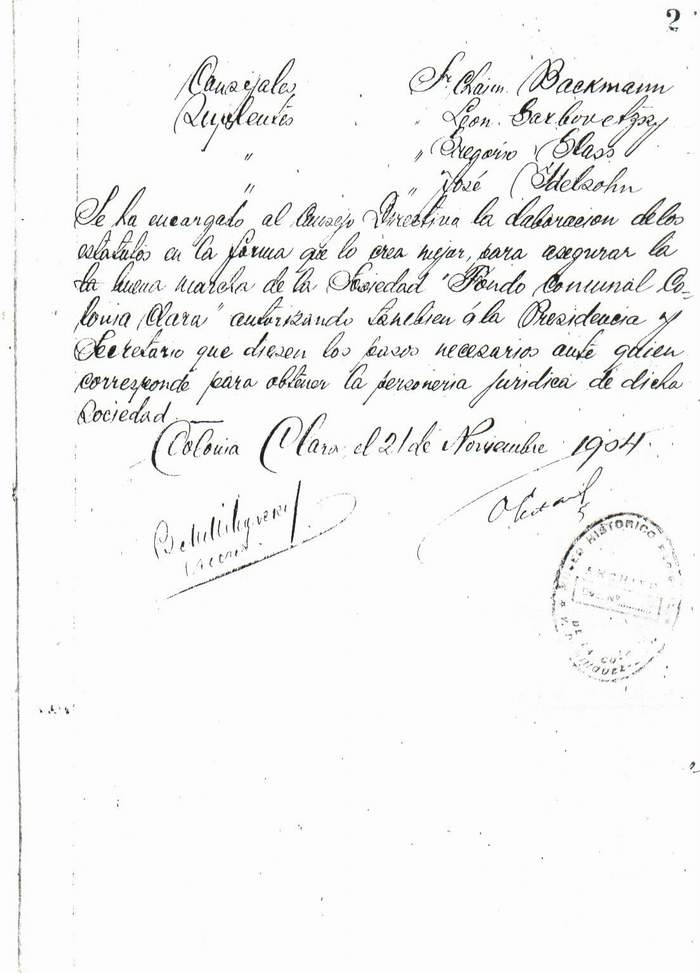 2
Consejales Sr. Chaim Backmann
Suplentes " Leon Garbovetzky
" " Gregorio Glass
" " José Idelsohn
Se ha encargado al Consejo Directivo la elaboracion de los
estatutos en la forma que lo crea mejor, para asegurar la
la buena marcha de la Sociedad "Fondo Comunal Co-
lonia Clara" autorizando tambien á la Presidencia y
Secretario que diesen los pasos necesarios ante quien
corresponde para obtener la personeria juridica de dicha
sociedad
Colonia Clara, el 21 de Noviembre 1904.
HISTORICO
ARCHIVO
DE LA